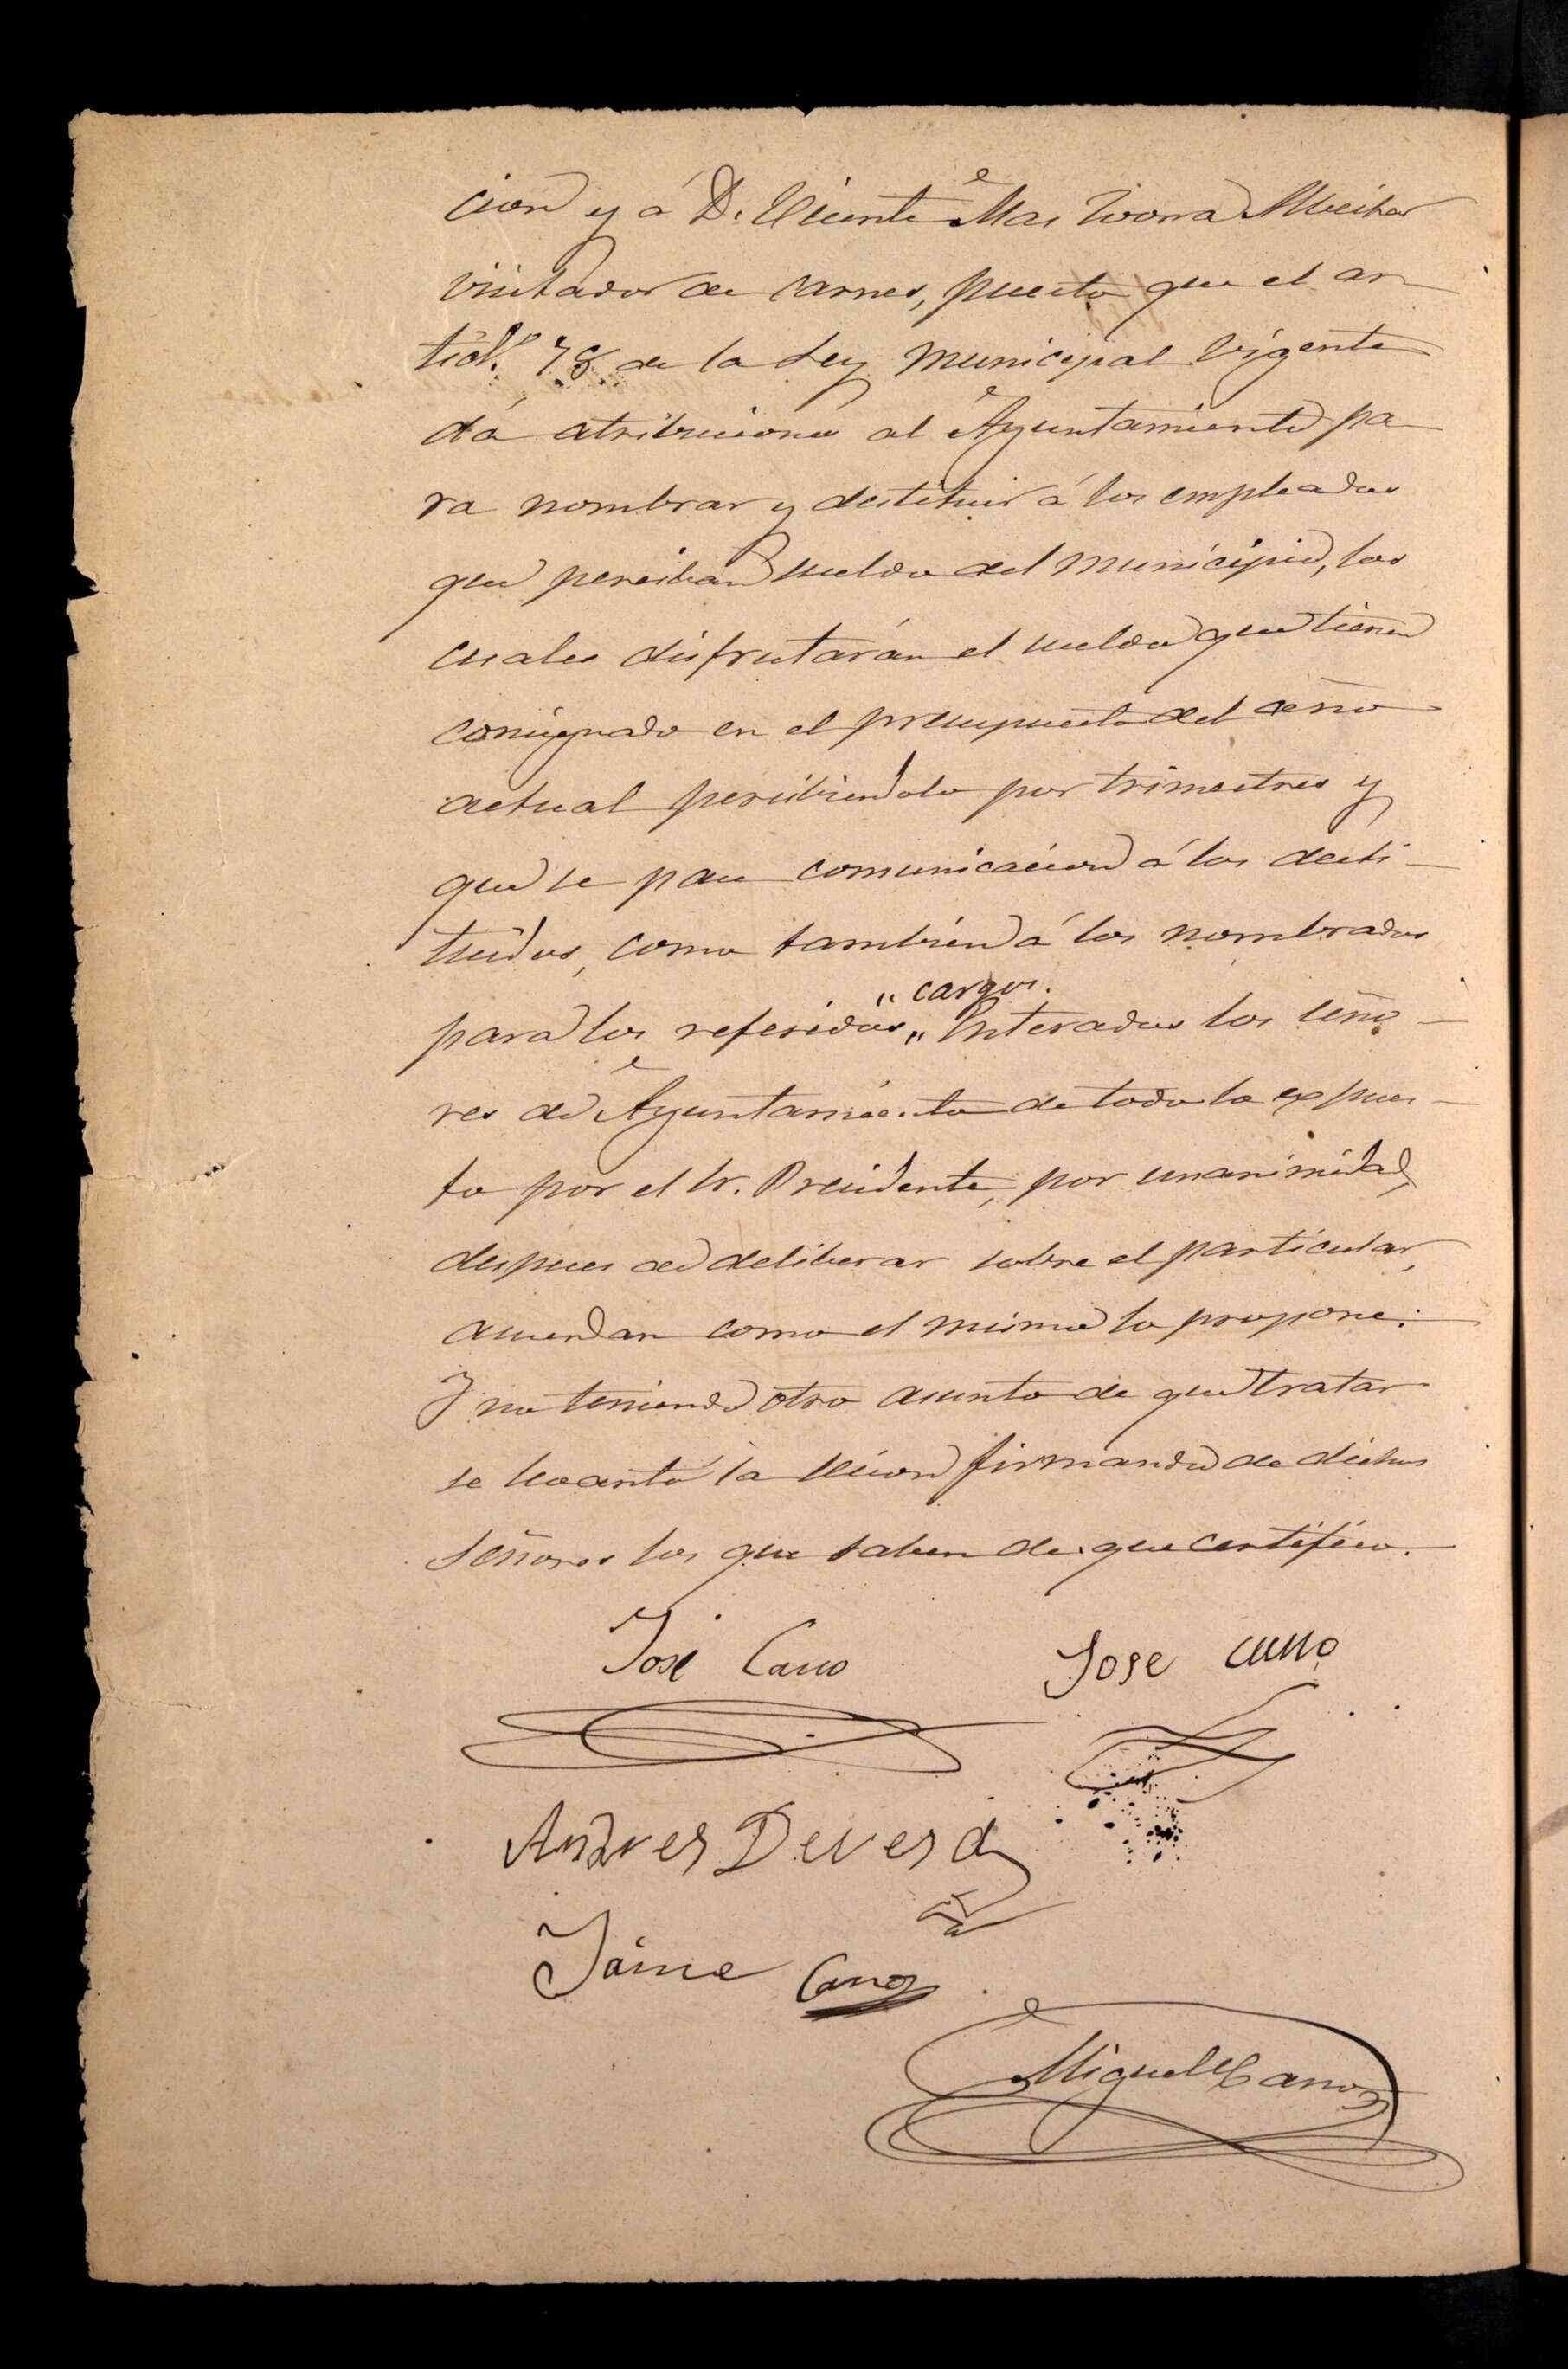 cion y á D. Vicente Mas Zorra Albeitar
visitador de carnes, puesto que el ar
ticl.º 78 de la Ley Municipal vigente
dá atribuciones al Ayuntamiento pa
ra nombrar y destituir á los empleados
que perciban sueldo del municipio, los
cuales disfrutarán el sueldo que tienen
consignado en el presupuesto del año
actual percibiendolo por trimestres y
que se pase comunicacion á los desti-
tuidos, como tambien á los nombrados
para los referidos "cargos." Enterados los seño-
res de Ayuntamiento de todo lo expues-
to por el Sr. Presidente, por unanimidad,
despues de deliberar sobre el particular,
acuerdan como el mismo lo propone.
Y no teniendo otro asunto de que tratar
se levantó la sesion firmando de dichos
señores los que saben de que certifico.
José Cano
Jose Cano
Andres Devesa
Jaime Cano
Miguel Cano